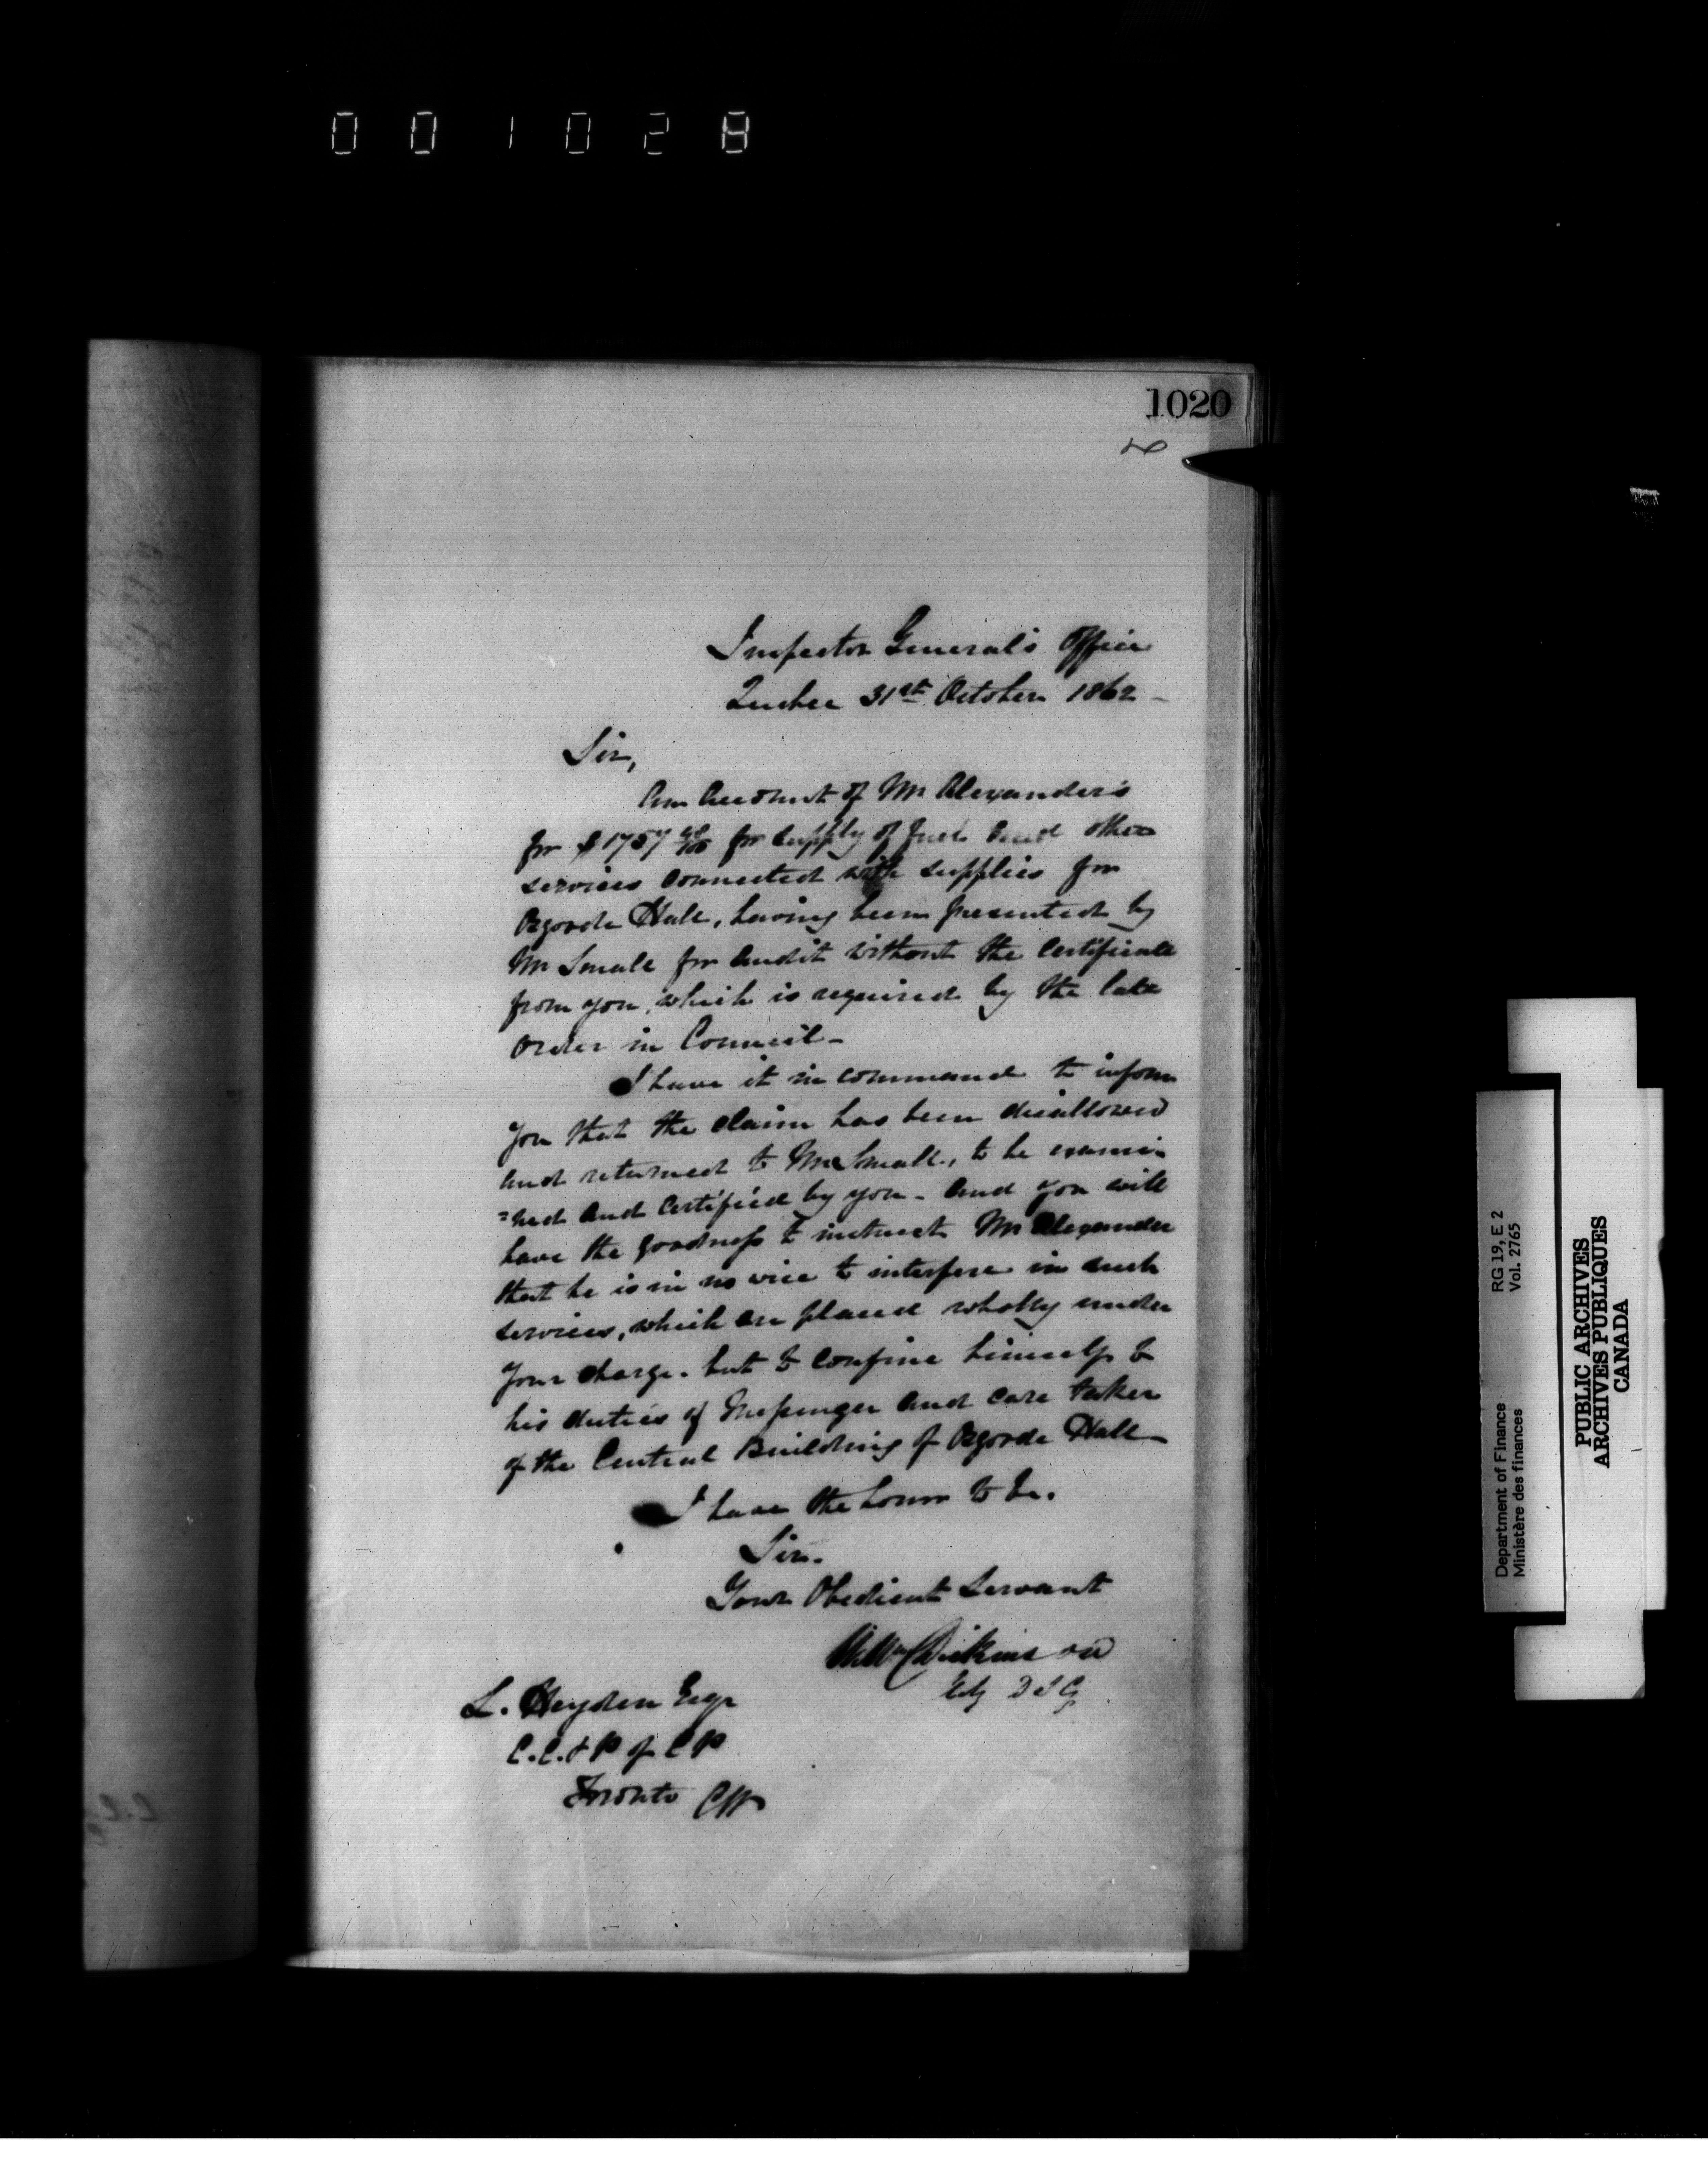 001028
1020
Inspector General's Office
Quebec 31st October 1862 -
Sir,
An Account of Mr Alexander's
for $1757 48/100 for supply of fuel and other
services connected with supplies for
Osgoode Hall, having been presented by
Mr Small for audit without the certificate
from you, which is required by the late
order in Council -
I have it in command to inform
you that the claim has been disallowed
and returned to Mr Small, to be exami-
=ned and certified by you - and you will
have the goodness to instruct Mr Alexander
that he is in no wise to interfere in such
services, which are placed wholly under
your charge. but to confine himself to
his duties of Messenger and care taker
of the Central Building of Osgoode Hall -
I have the honor to be.
Sir.
Your Obedient Servant
Wm Dickinson
D I G
L. Heyden Esqr
C.C. & P of C P
Toronto CW
Department of Finance RG 19, E 2
Ministère des finances Vol. 2765
PUBLIC ARCHIVES
ARCHIVES PUBLIQUES
CANADA